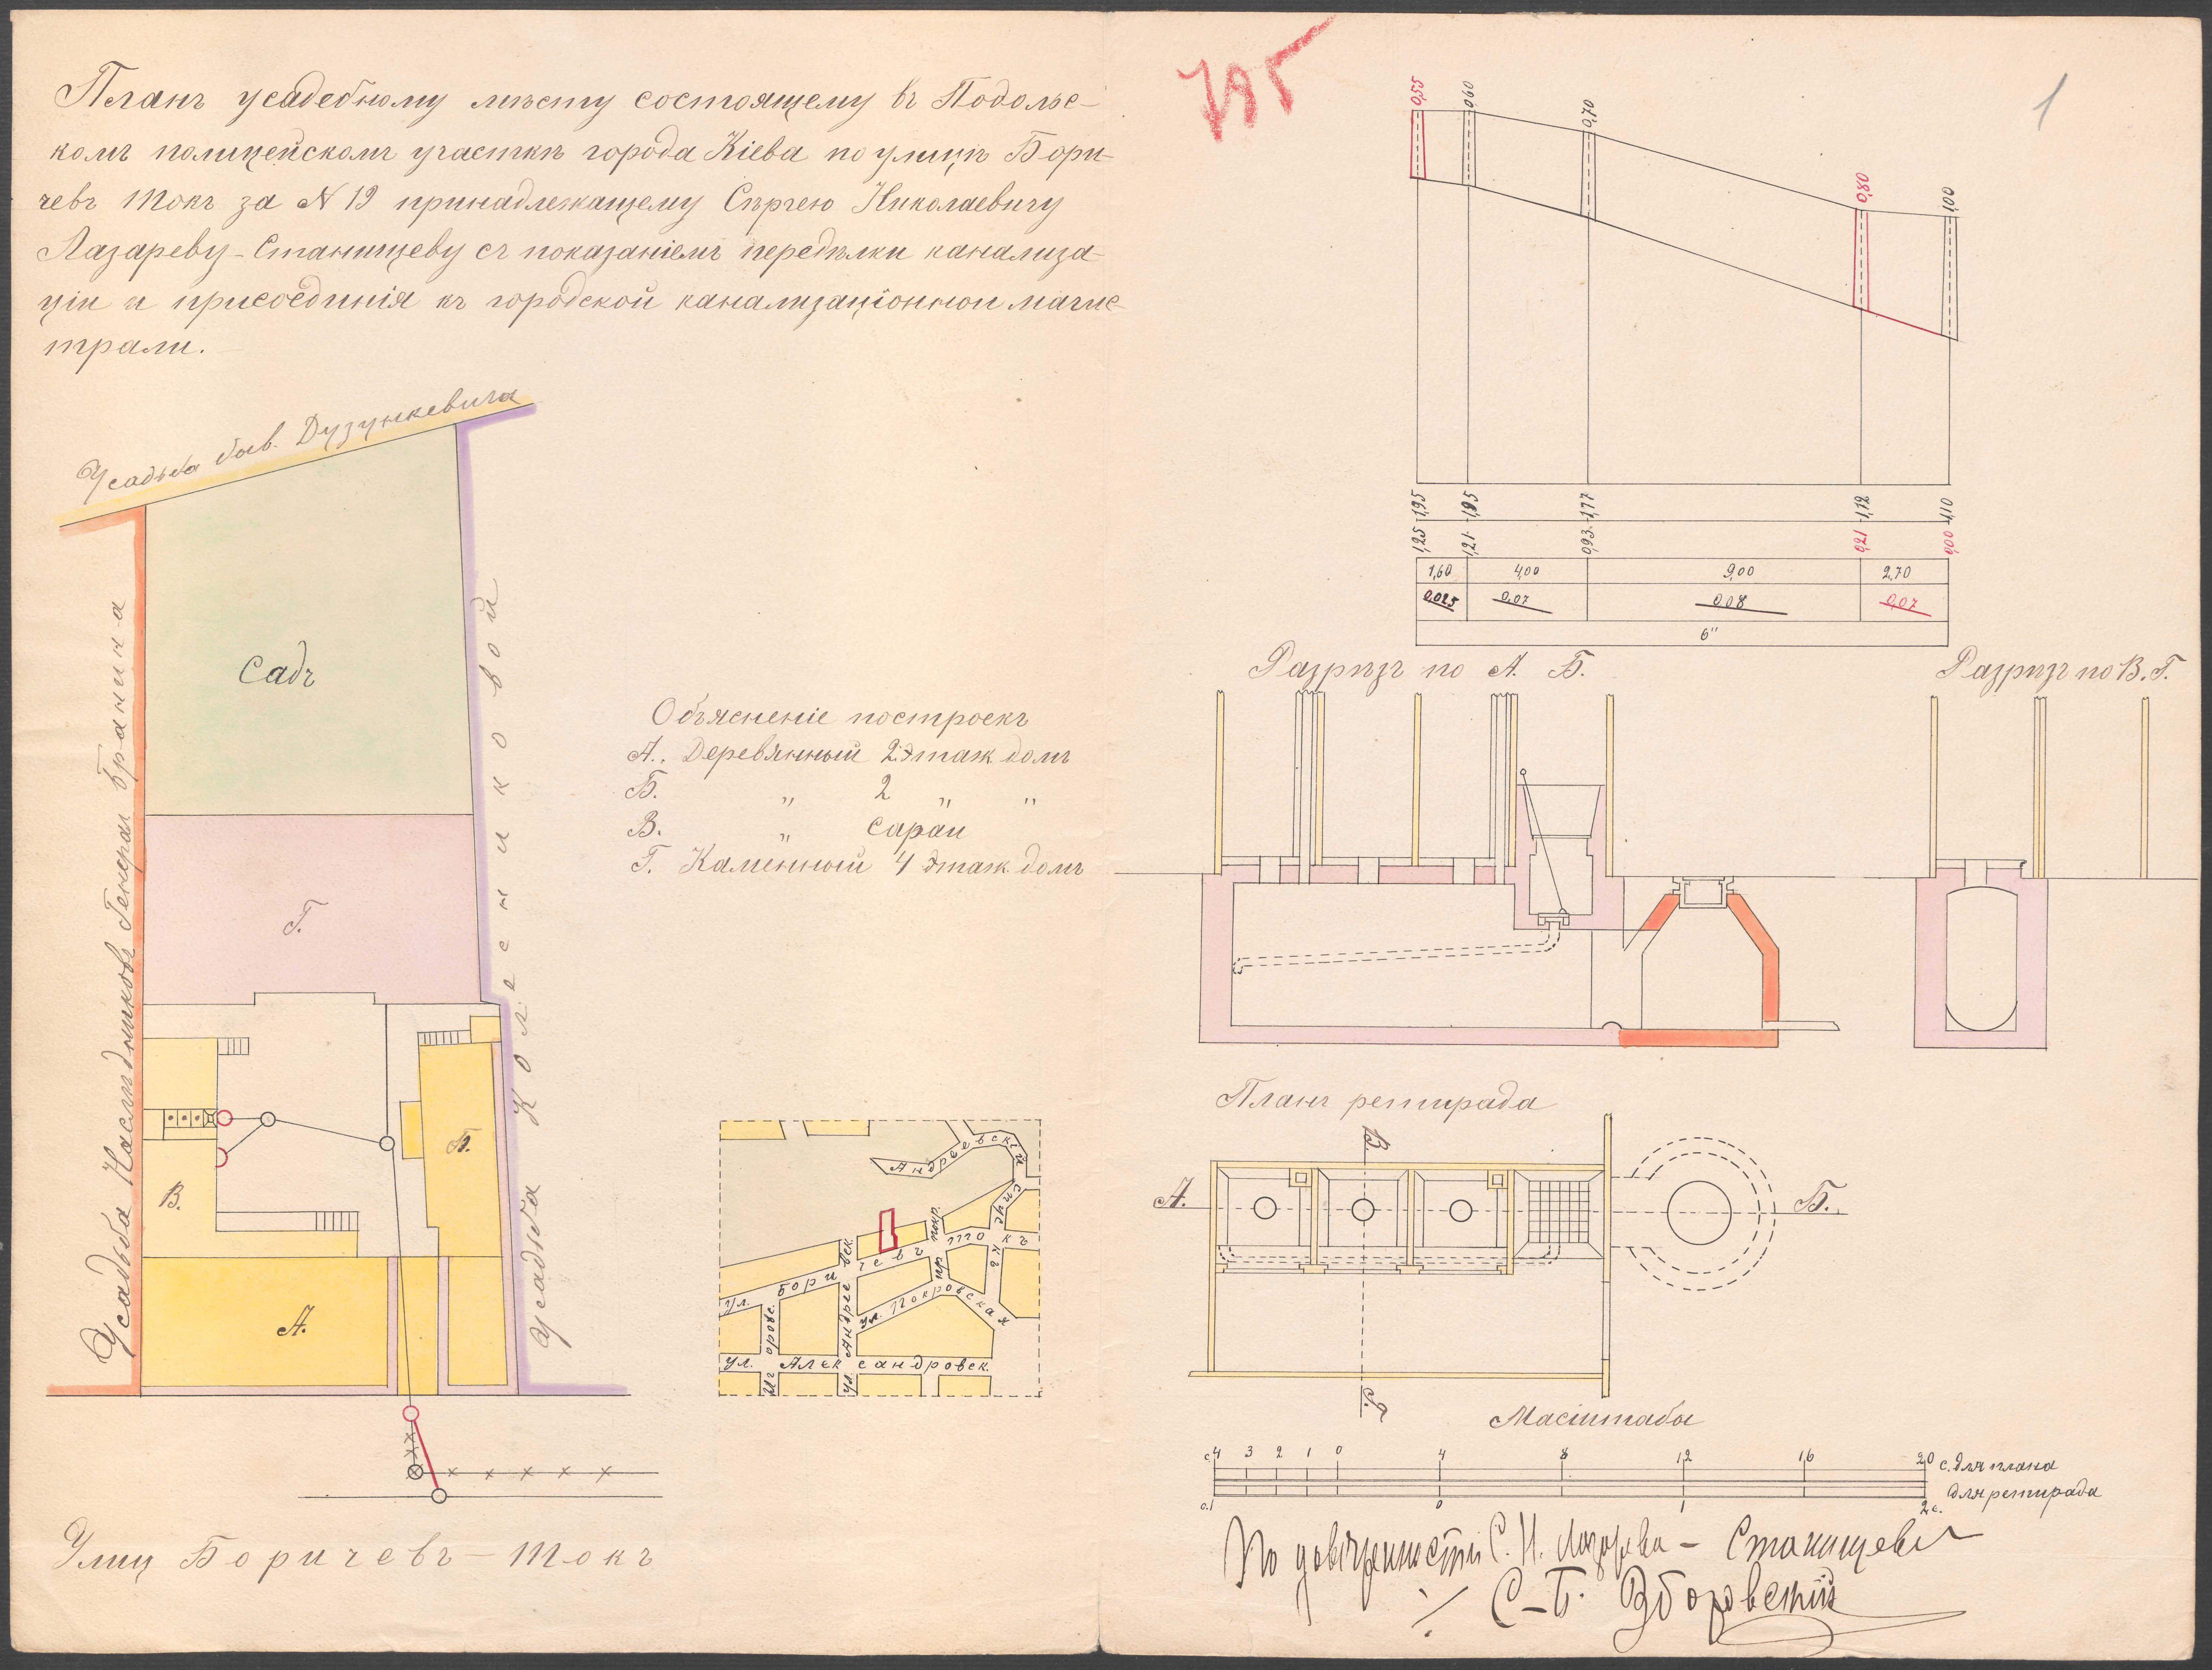 Планъ усадебному мѣсту состоящему въ Подольс-
комъ полицейскомъ участкѣ города Кіева по улицѣ Бори-
чевъ Токъ за № 19 принадлежащему Сѣргею Николаевичу
Лазареву-Станищеву съ показаніемъ передѣлки канализа-
ціи и присоединія къ городской канализаціонной магис-
трали.
Усадьба быв. Дузункевича
Усадьба Наслѣдниковъ Генерал Бранина
Усадьба Колесниковой
Садъ
Г.
В.
Б.
А.
Улиц Боричевъ-Токъ
Объясненіе построекъ
А. Деревянный 2 этаж домъ
Б. " 2 " "
В. " Сараи
Г. Каменный 4 этаж домъ
Андреевскій спускъ
ул. Боричевъ токъ
ул. Андреевск.
ул. Покровская
ул. Александровск.
1
0,50 0,60 0,70 0,80 1,00
1,95 1,95 1,77 1,12 1,10
1,25 1,21 0,93 0,21 0,00
1,60 4,00 9,00 2,70
0,025 0,07 0,08 0,07
6"
Разрѣзъ по А. Б.
Разрѣзъ по В. Г.
Планъ ретирада
В.
А.
Б.
Г.
Масштабы
с.4 3 2 1 0 4 8 12 16 20 с. для плана
с.1 0 1 2 с. для ретирада
По довѣренности С. Н. Лазарева-Станищева
С-Б. Зборовскій